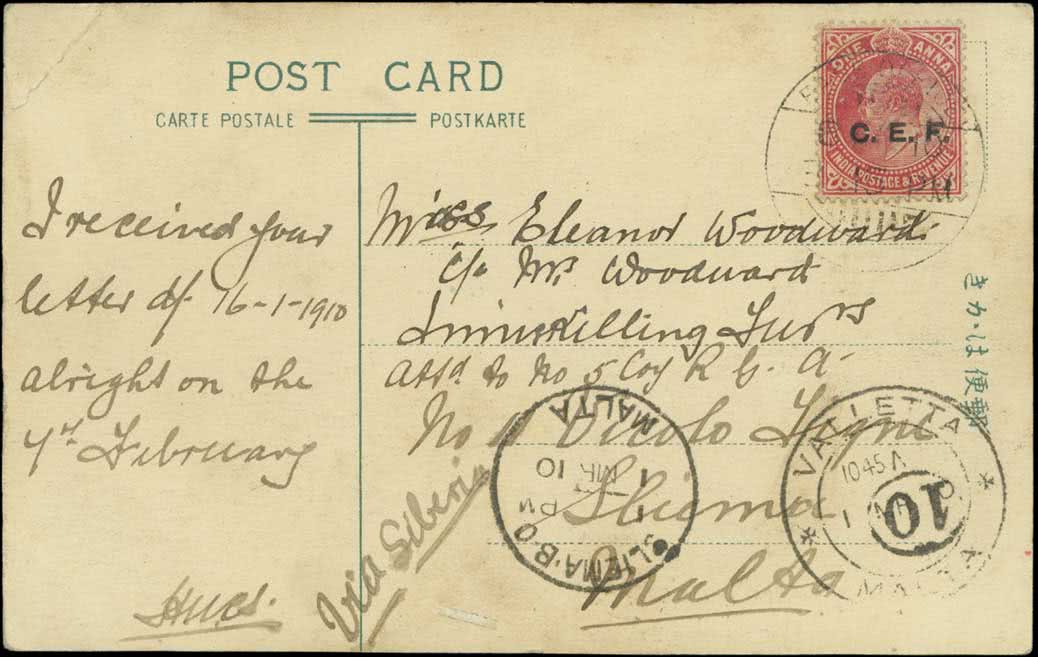 POST CARD
CARTE POSTALE POSTKARTE
ONE ANNA
C. E. F.
INDIA POSTAGE & REVENUE
I received your
letter of 16-1-1910
alright on the
February
Miss Eleanor Woodward
c/o Mrs Woodward
Inniskilling Fusrs
attd to No 5 Coy R G A
No Vicolo Tigne
Sliema
Malta
Via Siberia
きかは便郵
SLIEMA B.O
MALTA
1 MR 10
PM
VALLETTA
1045A
1 MR 10
MALTA
10